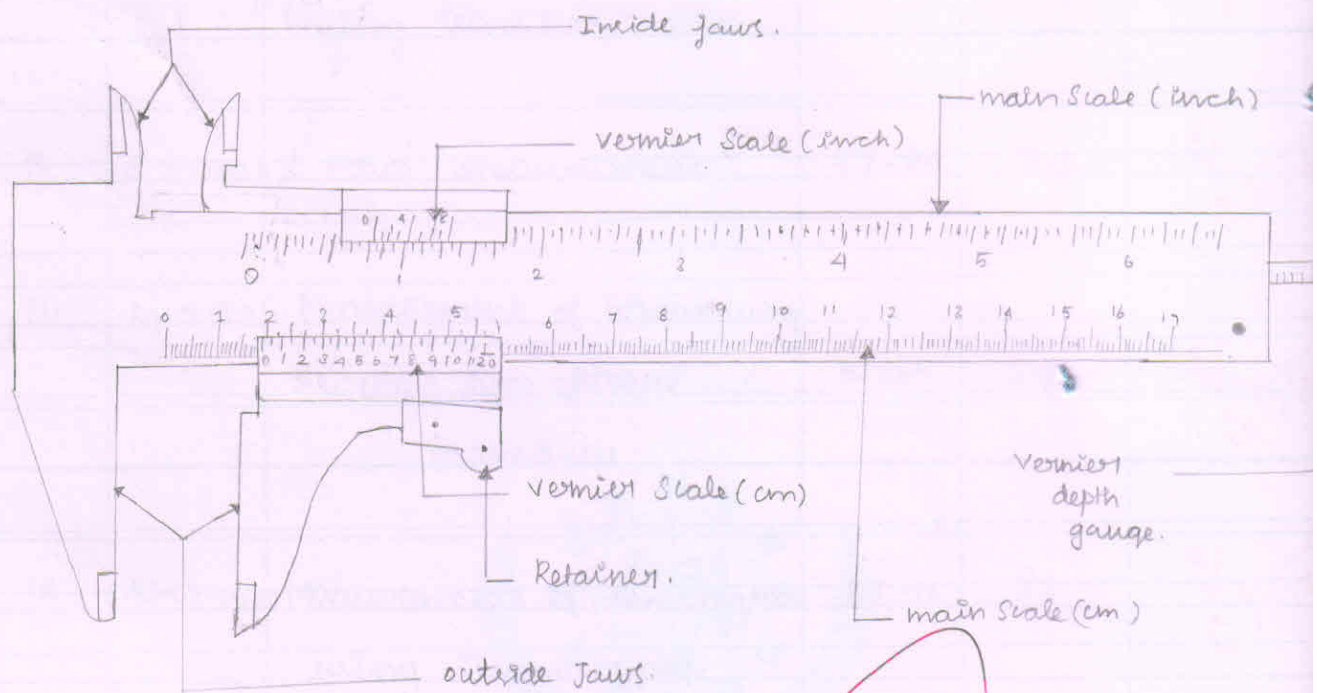 Inside Jaws.
main Scale (inch)
vernier Scale (inch)
0 4 8
0 2 3 4 5 6
0 1 2 3 4 5 6 7 8 9 10 11 12 13 14 15 16 17
0 1 2 3 4 5 6 7 8 9 10
vernier Scale (cm)
vernier
depth
gauge.
Retainer.
main Scale (cm)
outside Jaws.